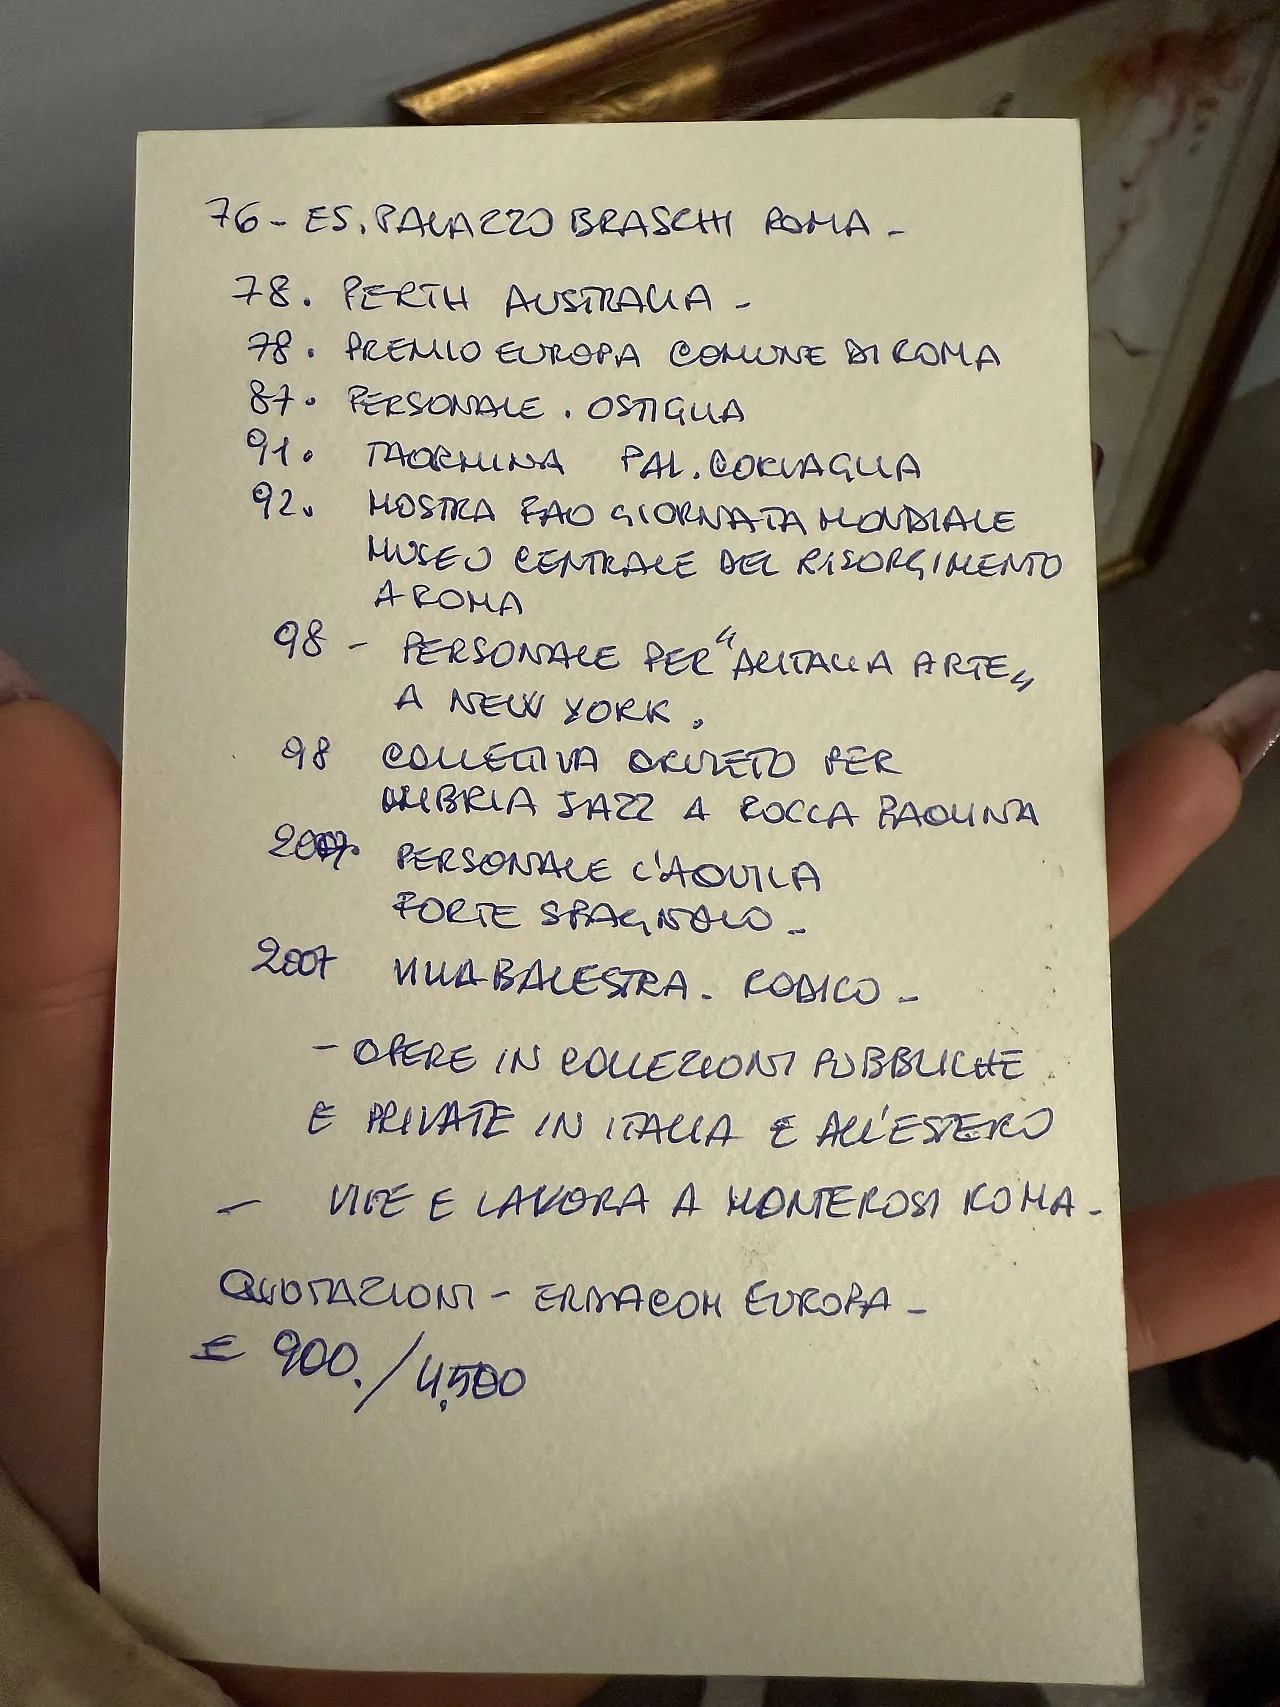 76 - ES. PALAZZO BRASCHI ROMA -
78. PERTH AUSTRALIA -
78. PREMIO EUROPA COMUNE DI ROMA
87. PERSONALE. OSTIGLIA
91. TAORMINA PAL. CORVAGLIA
92. MOSTRA FAO GIORNATA MONDIALE
MUSEO CENTRALE DEL RISORGIMENTO
A ROMA
98 - PERSONALE PER "ALITALIA ARTE"
A NEW YORK.
98 COLLETTIVA ORVIETO PER
UMBRIA JAZZ A ROCCA PAOLINA
PERSONALE L'AQUILA
FORTE SPAGNOLO -
2007 VILLA BALESTRA. RODIGO -
- OPERE IN COLLEZIONI PUBBLICHE
E PRIVATE IN ITALIA E ALL'ESTERO
- VIVE E LAVORA A MONTEROSI ROMA -
QUOTAZIONI - EUROPA -
€ 900. / 4.500